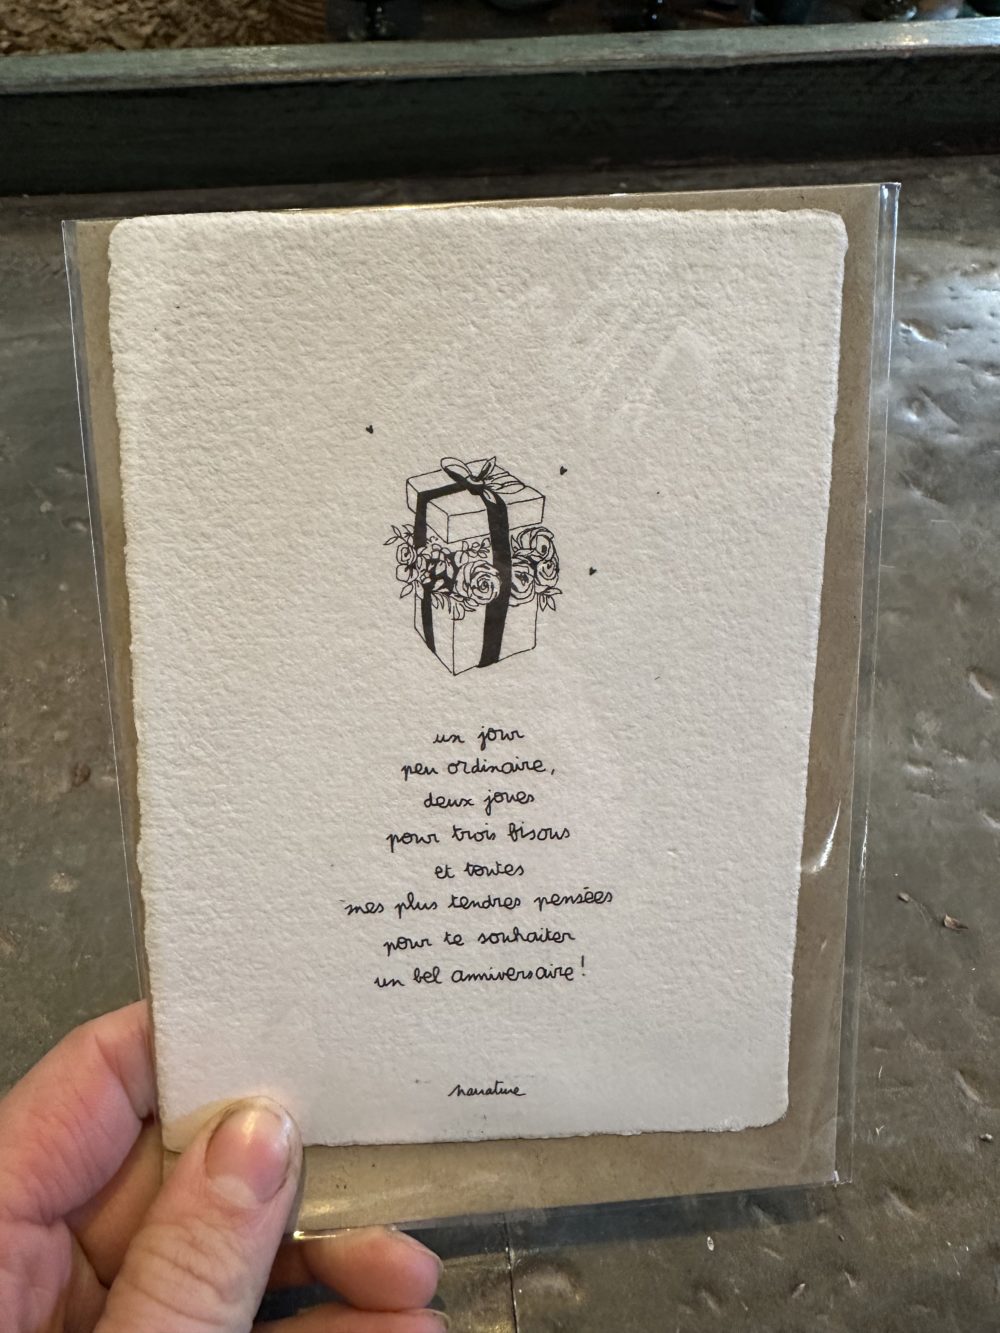 un jour
peu ordinaire,
deux joues
pour trois bisous
et toutes
mes plus tendres pensées
pour te souhaiter
un bel anniversaire !
narrature